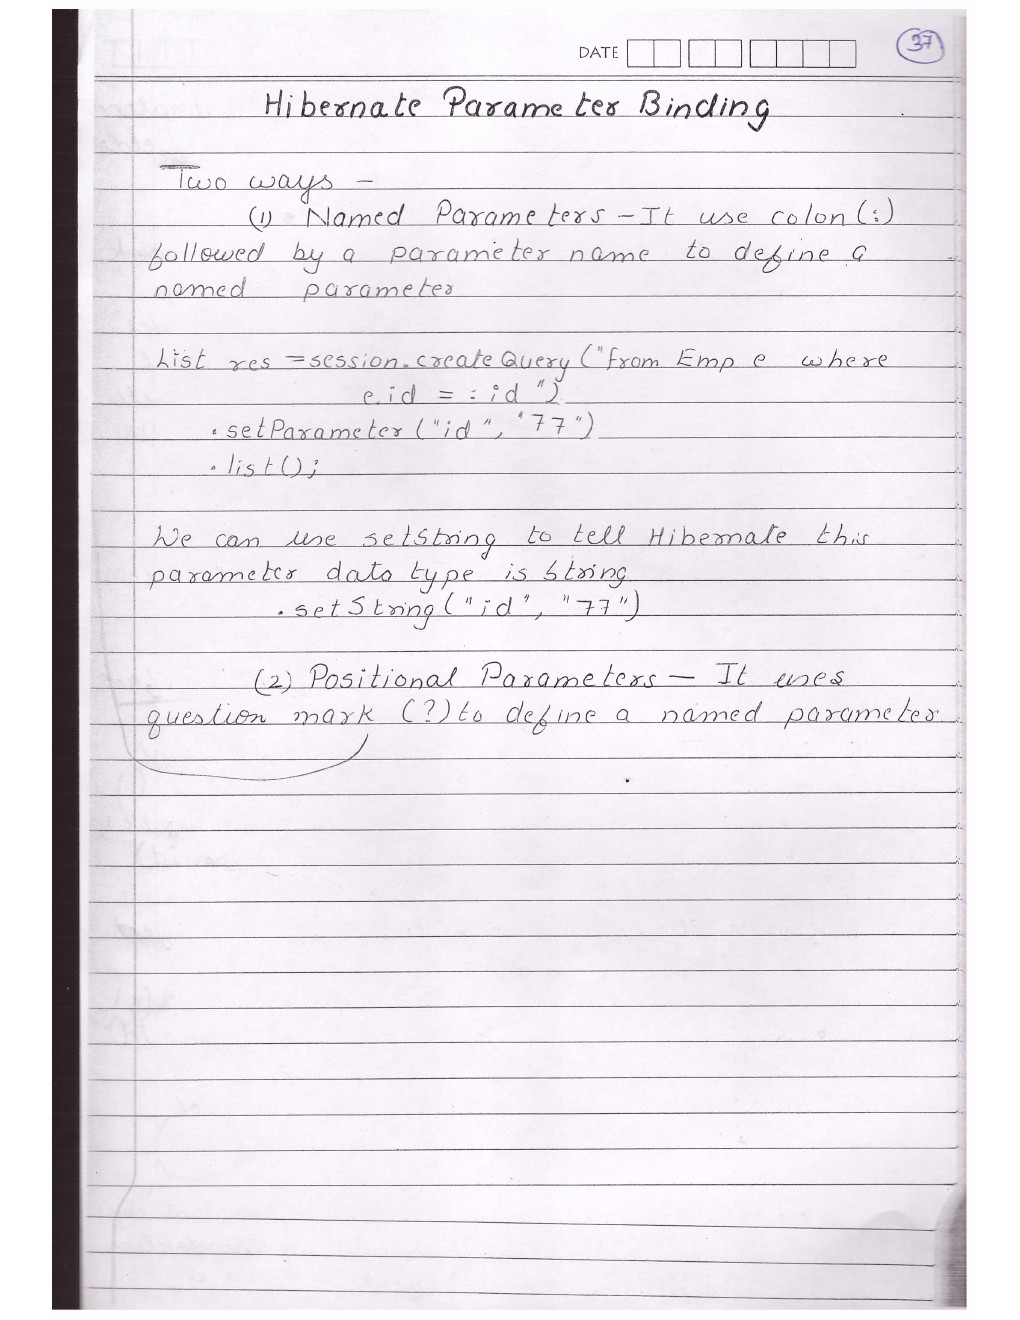 DATE
37
Hibernate Parameter Binding
Two ways -
(1) Named Parameters - It use colon (:)
followed by a parameter name to define a
named parameter
List res = session.createQuery ("from Emp e where
e.id = :id ")
.setParameter ("id", "77")
.list();
We can use setString to tell Hibernate this
parameter data type is string
.setString ("id", "77")
(2) Positional Parameters - It uses
question mark (?) to define a named parameter